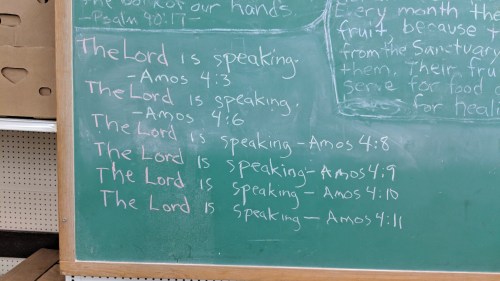 the work of our hands.
-Psalm 90:17-
The Lord is speaking.
-Amos 4:3
The Lord is speaking.
-Amos 4:6
The Lord is speaking-Amos 4:8
The Lord is speaking-Amos 4:9
The Lord is speaking-Amos 4:10
The Lord is speaking-Amos 4:11
Every month the
fruit, because
from the Sanctuary
them. Their fru
serve for food
for heal